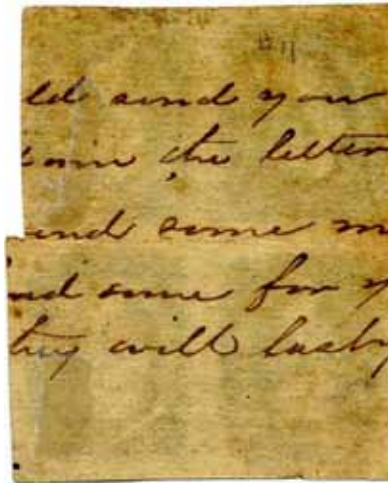 #11
ld send your
the letter
end some m
nd some for y
they will last